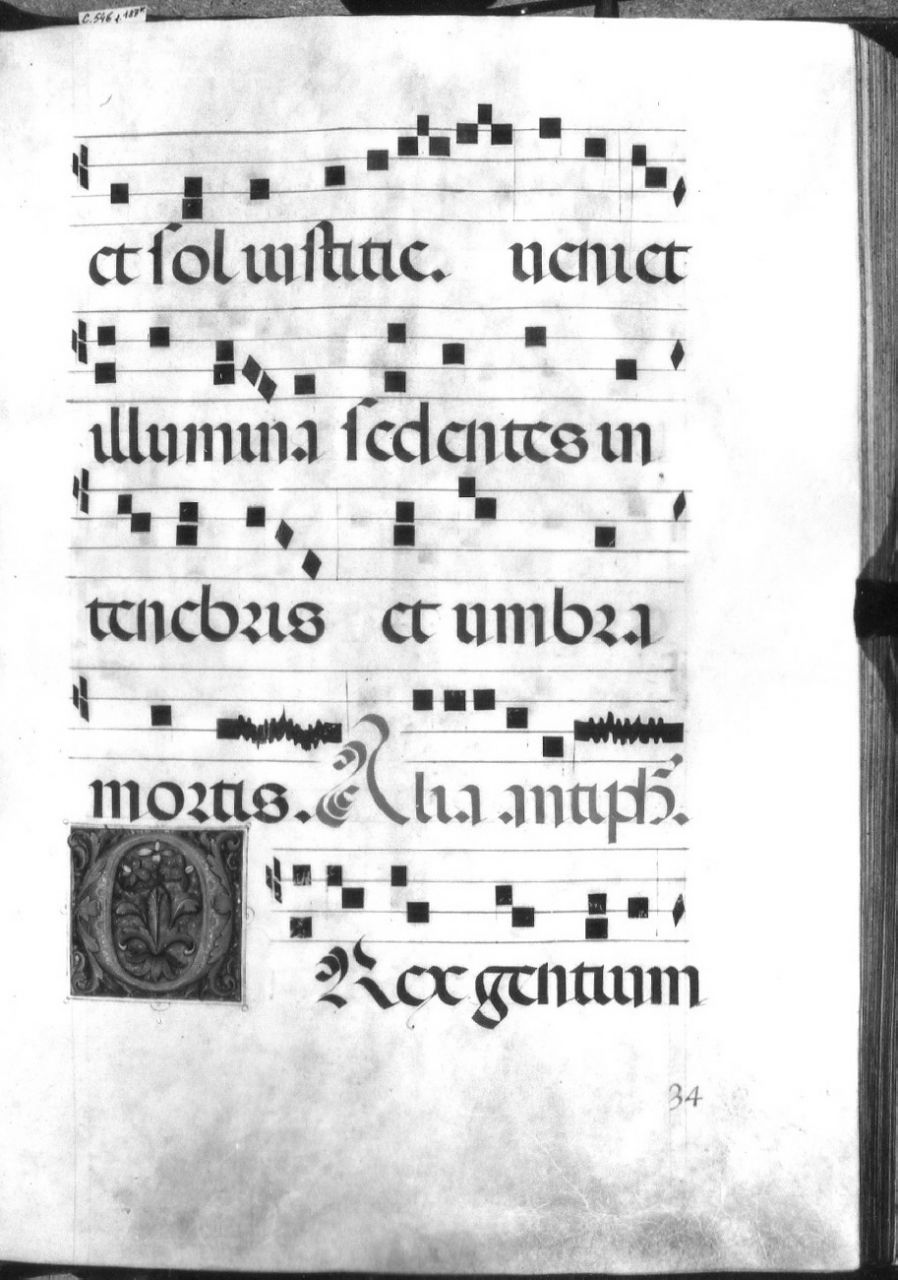 C. 546 f. 187r
et sol iustitie. ueniet
illumina sedentes in
tenebris et umbra
mortis. Alia antiph.
O Rex gentium
34